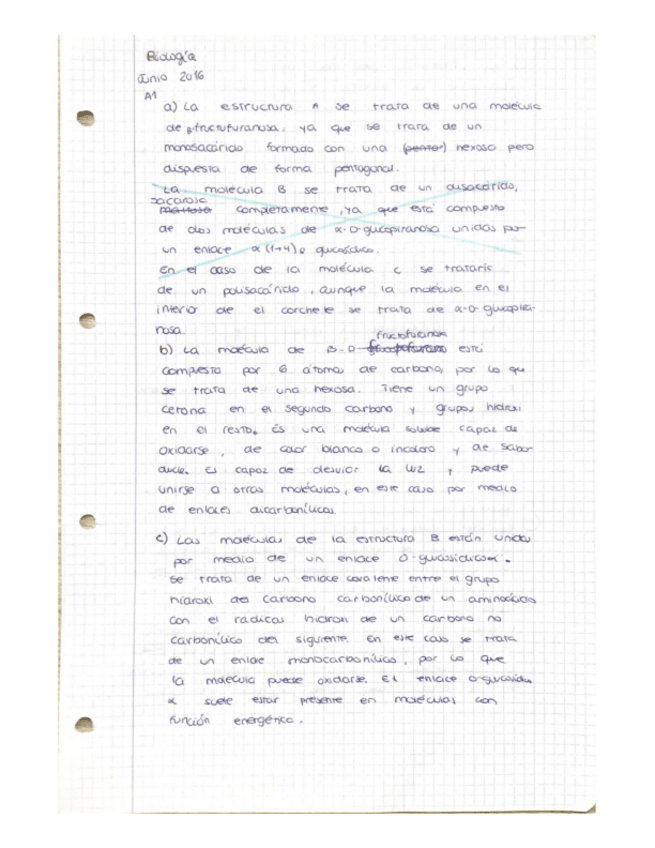 Biología
Junio 2016
A1
a) La estructura A se trata de una molécula
de β fructofuranosa, ya que se trata de un
monosacárido formado con una (pento) hexosa pero
dispuesta de forma pentagonal.
La molécula B se trata de un disacárido,
sacarosa
maltosa completamente, ya que está compuesto
de dos moléculas de α-D-glucopiranosa unidas por
un enlace α(1→4) o glucosídico.
En el caso de la molécula C se trataría
de un polisacárido, aunque la molécula en el
interior de el corchete se trata de α-D-glucopira-
nosa.
fructofuranosa
b) La molécula de β-D- está
compuesta por 6 átomos de carbono, por lo que
se trata de una hexosa. Tiene un grupo
cetona en el segundo carbono y grupos hidroxi
en el resto. Es una molécula soluble capaz de
oxidarse, de color blanco o incoloro y de sabor
dulce. Es capaz de desviar la luz y puede
unirse a otras moléculas, en este caso por medio
de enlaces dicarbonílicos.
c) Las moléculas de la estructura B están unidas
por medio de un enlace O-glucosídico α.
Se trata de un enlace covalente entre el grupo
hidroxi del carbono carbonílico de un aminoácido
con el radical hidroxi de un carbono no
carbonílico del siguiente. En este caso se trata
de un enlace monocarbonílico, por lo que
la molécula puede oxidarse. El enlace o-glucosídico
α suele estar presente en moléculas con
función energética.